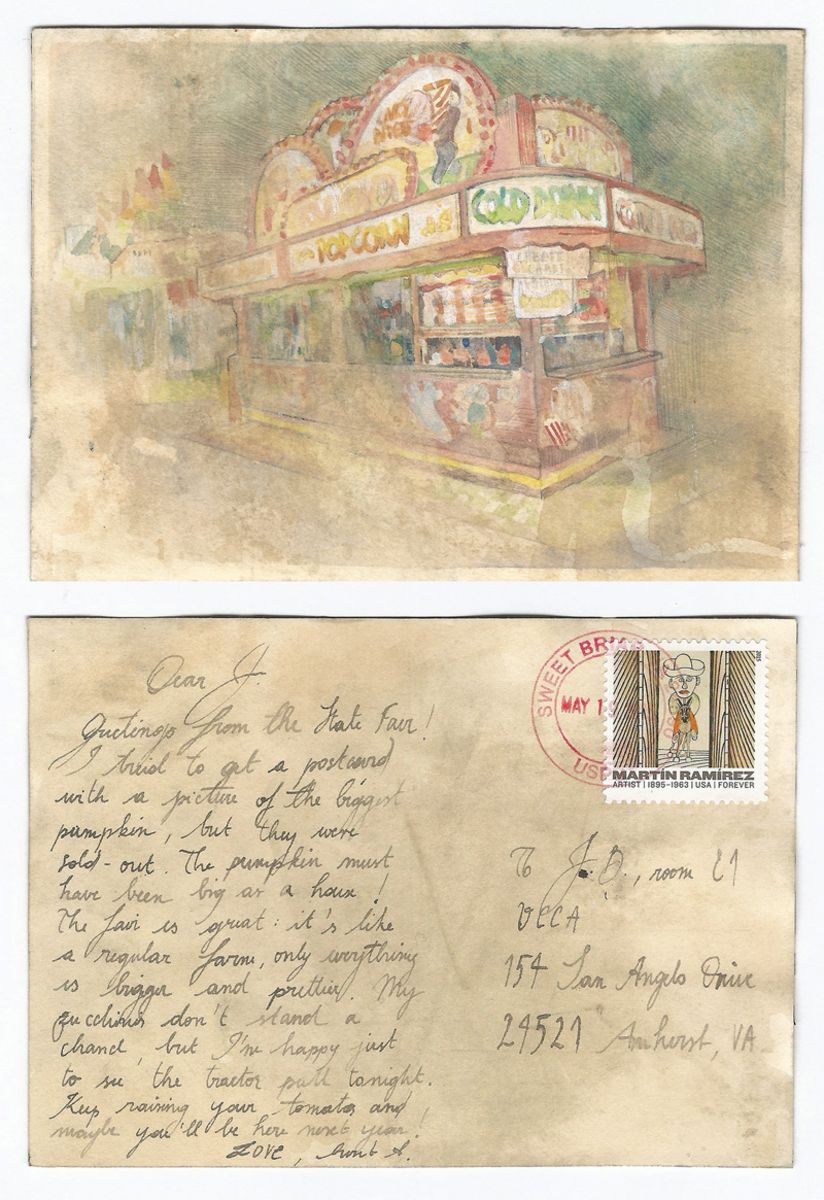 POPCORN
COLD DRINK
Dear J.
Greetings from the State Fair!
I tried to get a postcard
with a picture of the biggest
pumpkin, but they were
sold-out. The pumpkin must
have been big as a house!
The fair is great: it's like
a regular farm, only everything
is bigger and prettier. My
zucchinis don't stand a
chance, but I'm happy just
to see the tractor pull tonight.
Keep raising your tomatos and
maybe you'll be here next year!
LOVE, Aunt A.
SWEET BRIAR
MAY 1
USP
2015
MARTÍN RAMÍREZ
ARTIST | 1895–1963 | USA | FOREVER
To J.D., room
VCCA
154 San Angelo Drive
24521 Amherst, VA